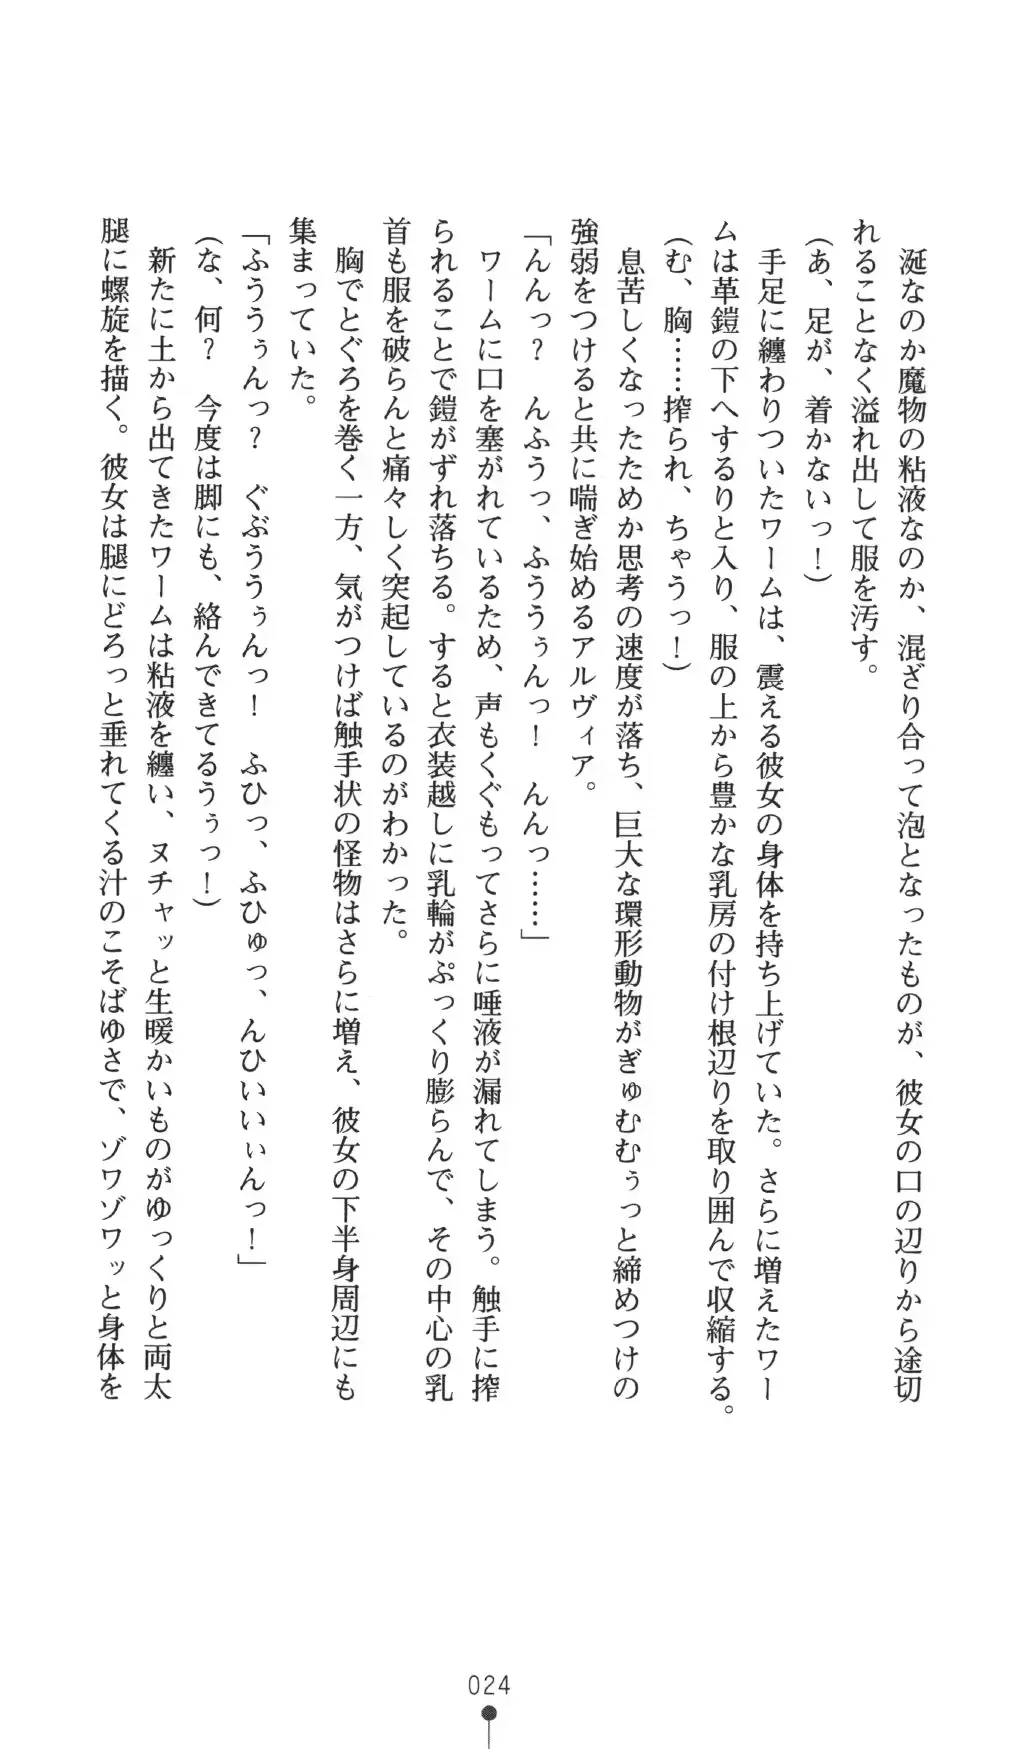 涎なのか魔物の粘液なのか、混ざり合って泡となったものが、彼女の口の辺りから途切
れることなく溢れ出して服を汚す。
(あ、足が、着かないっ！)
手足に纏わりついたワームは、震える彼女の身体を持ち上げていた。さらに増えたワー
ムは革鎧の下へするりと入り、服の上から豊かな乳房の付け根辺りを取り囲んで収縮する。
(む、胸……搾られ、ちゃうっ！)
息苦しくなったためか思考の速度が落ち、巨大な環形動物がぎゅむむぅっと締めつけの
強弱をつけると共に喘ぎ始めるアルヴィア。
「んんっ？　んふうっ、ふううぅんっ！　んんっ……」
ワームに口を塞がれているため、声もくぐもってさらに唾液が漏れてしまう。触手に搾
られることで鎧がずれ落ちる。すると衣装越しに乳輪がぷっくり膨らんで、その中心の乳
首も服を破らんと痛々しく突起しているのがわかった。
胸でとぐろを巻く一方、気がつけば触手状の怪物はさらに増え、彼女の下半身周辺にも
集まっていた。
「ふううぅんっ？　ぐぶううぅんっ！　ふひっ、ふひゅっ、んひいいぃんっ！」
(な、何？　今度は脚にも、絡んできてるうぅっ！)
新たに土から出てきたワームは粘液を纏い、ヌチャッと生暖かいものがゆっくりと両太
腿に螺旋を描く。彼女は腿にどろっと垂れてくる汁のこそばゆさで、ゾワゾワッと身体を
024